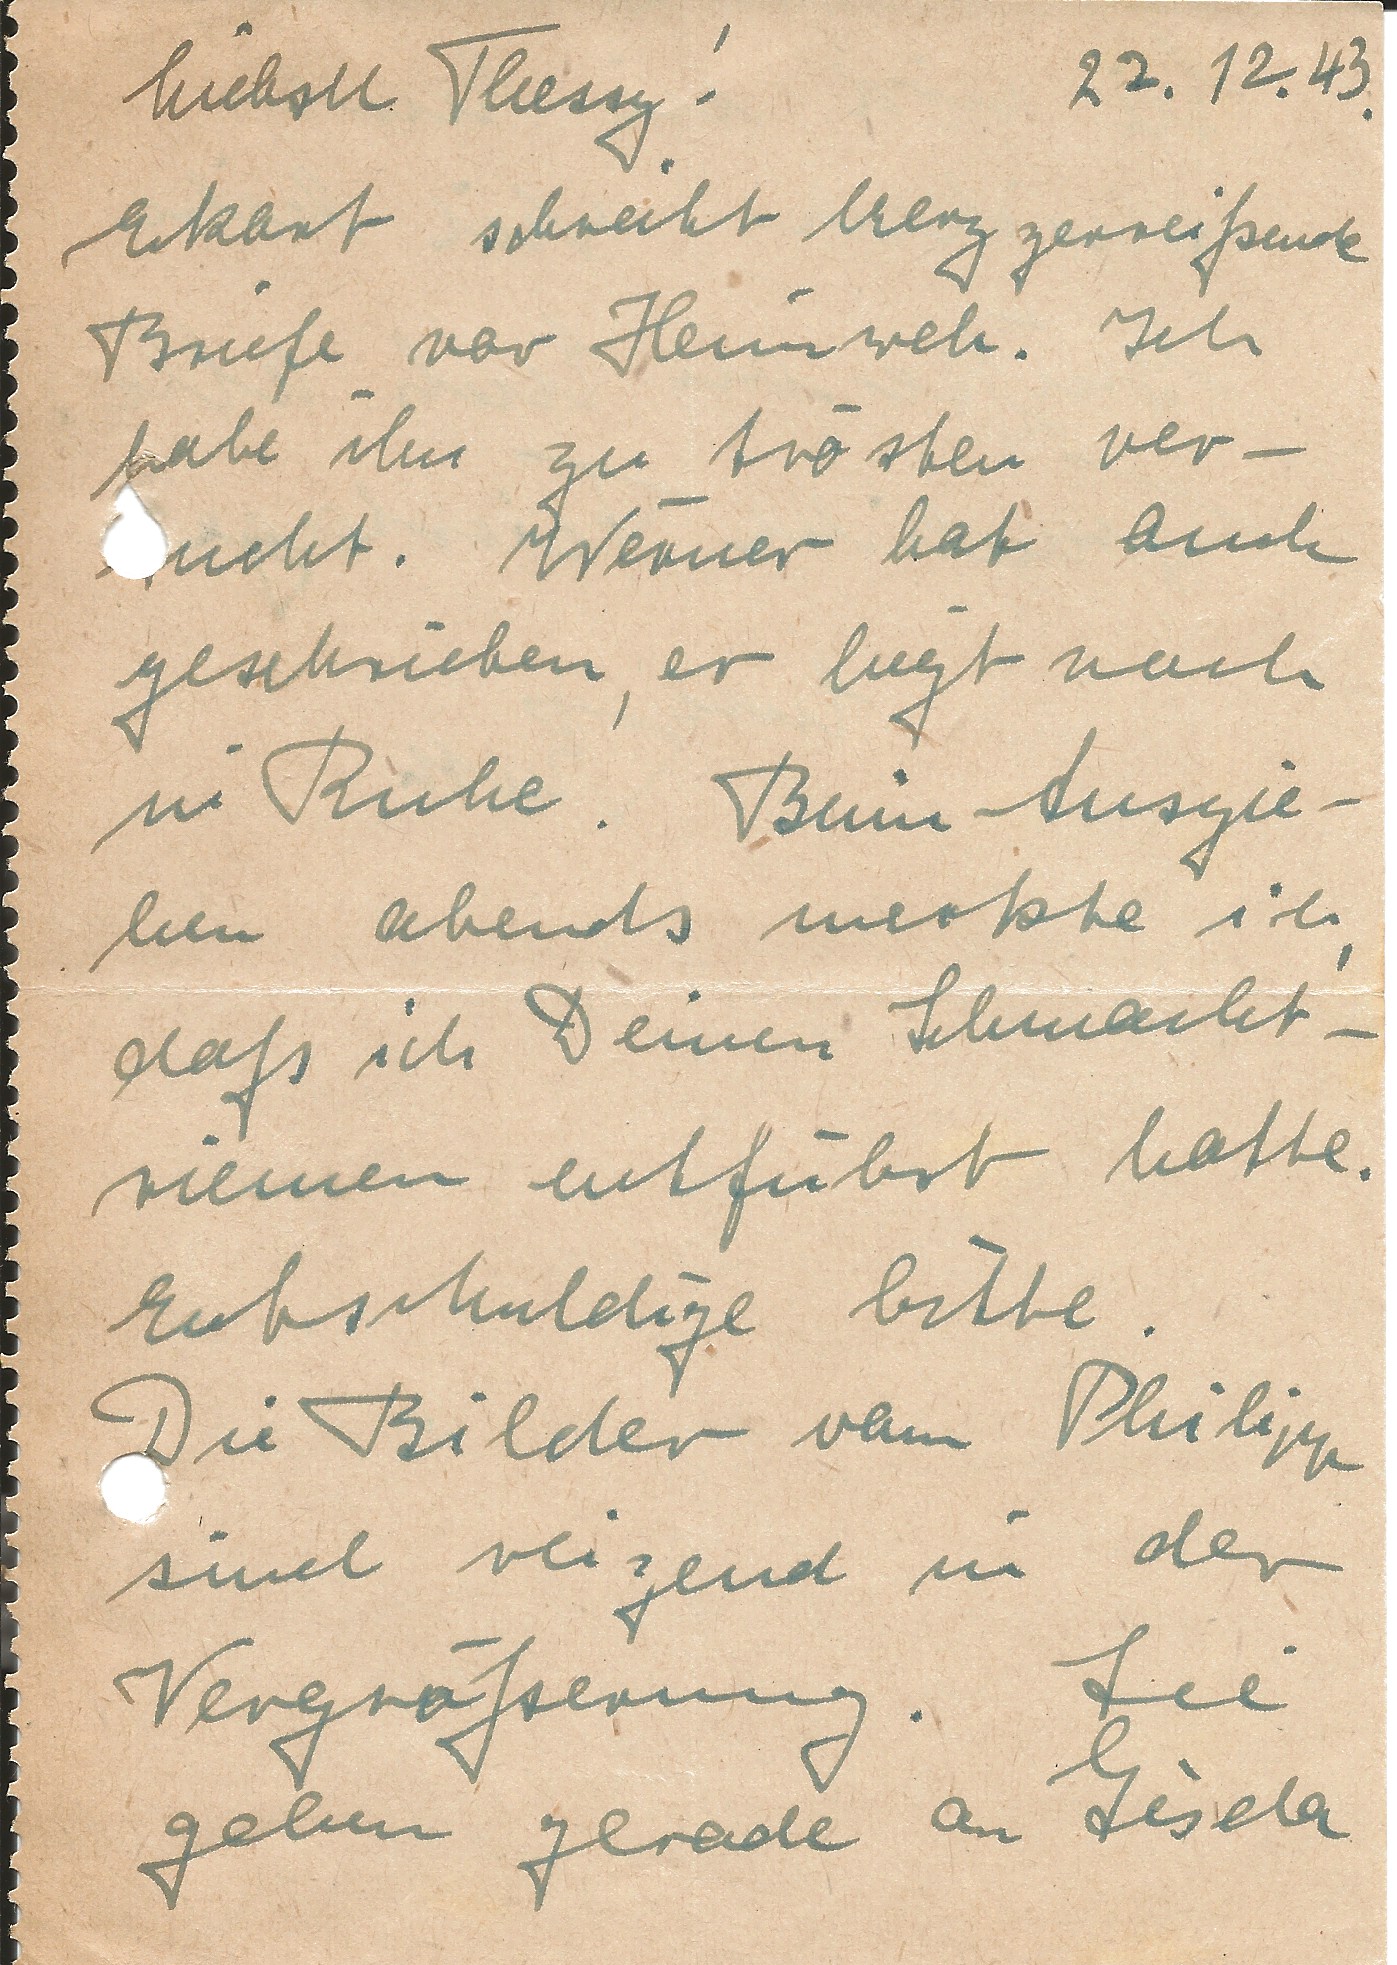 Liebste Thessy! 22.12.43.
Eckart schreibt herzzerreißende
Briefe vor Heimweh. Ich
habe ihn zu trösten ver-
sucht. Werner hat auch
geschrieben, er liegt noch
in Ruhe. Beim Auszie-
hen abends merkte ich,
daß ich Deinen Schmacht-
riemen entführt hatte.
Entschuldige bitte.
Die Bilder vom Philipp
sind reizend in der
Vergrößerung. Sie
gehen gerade an Gisela